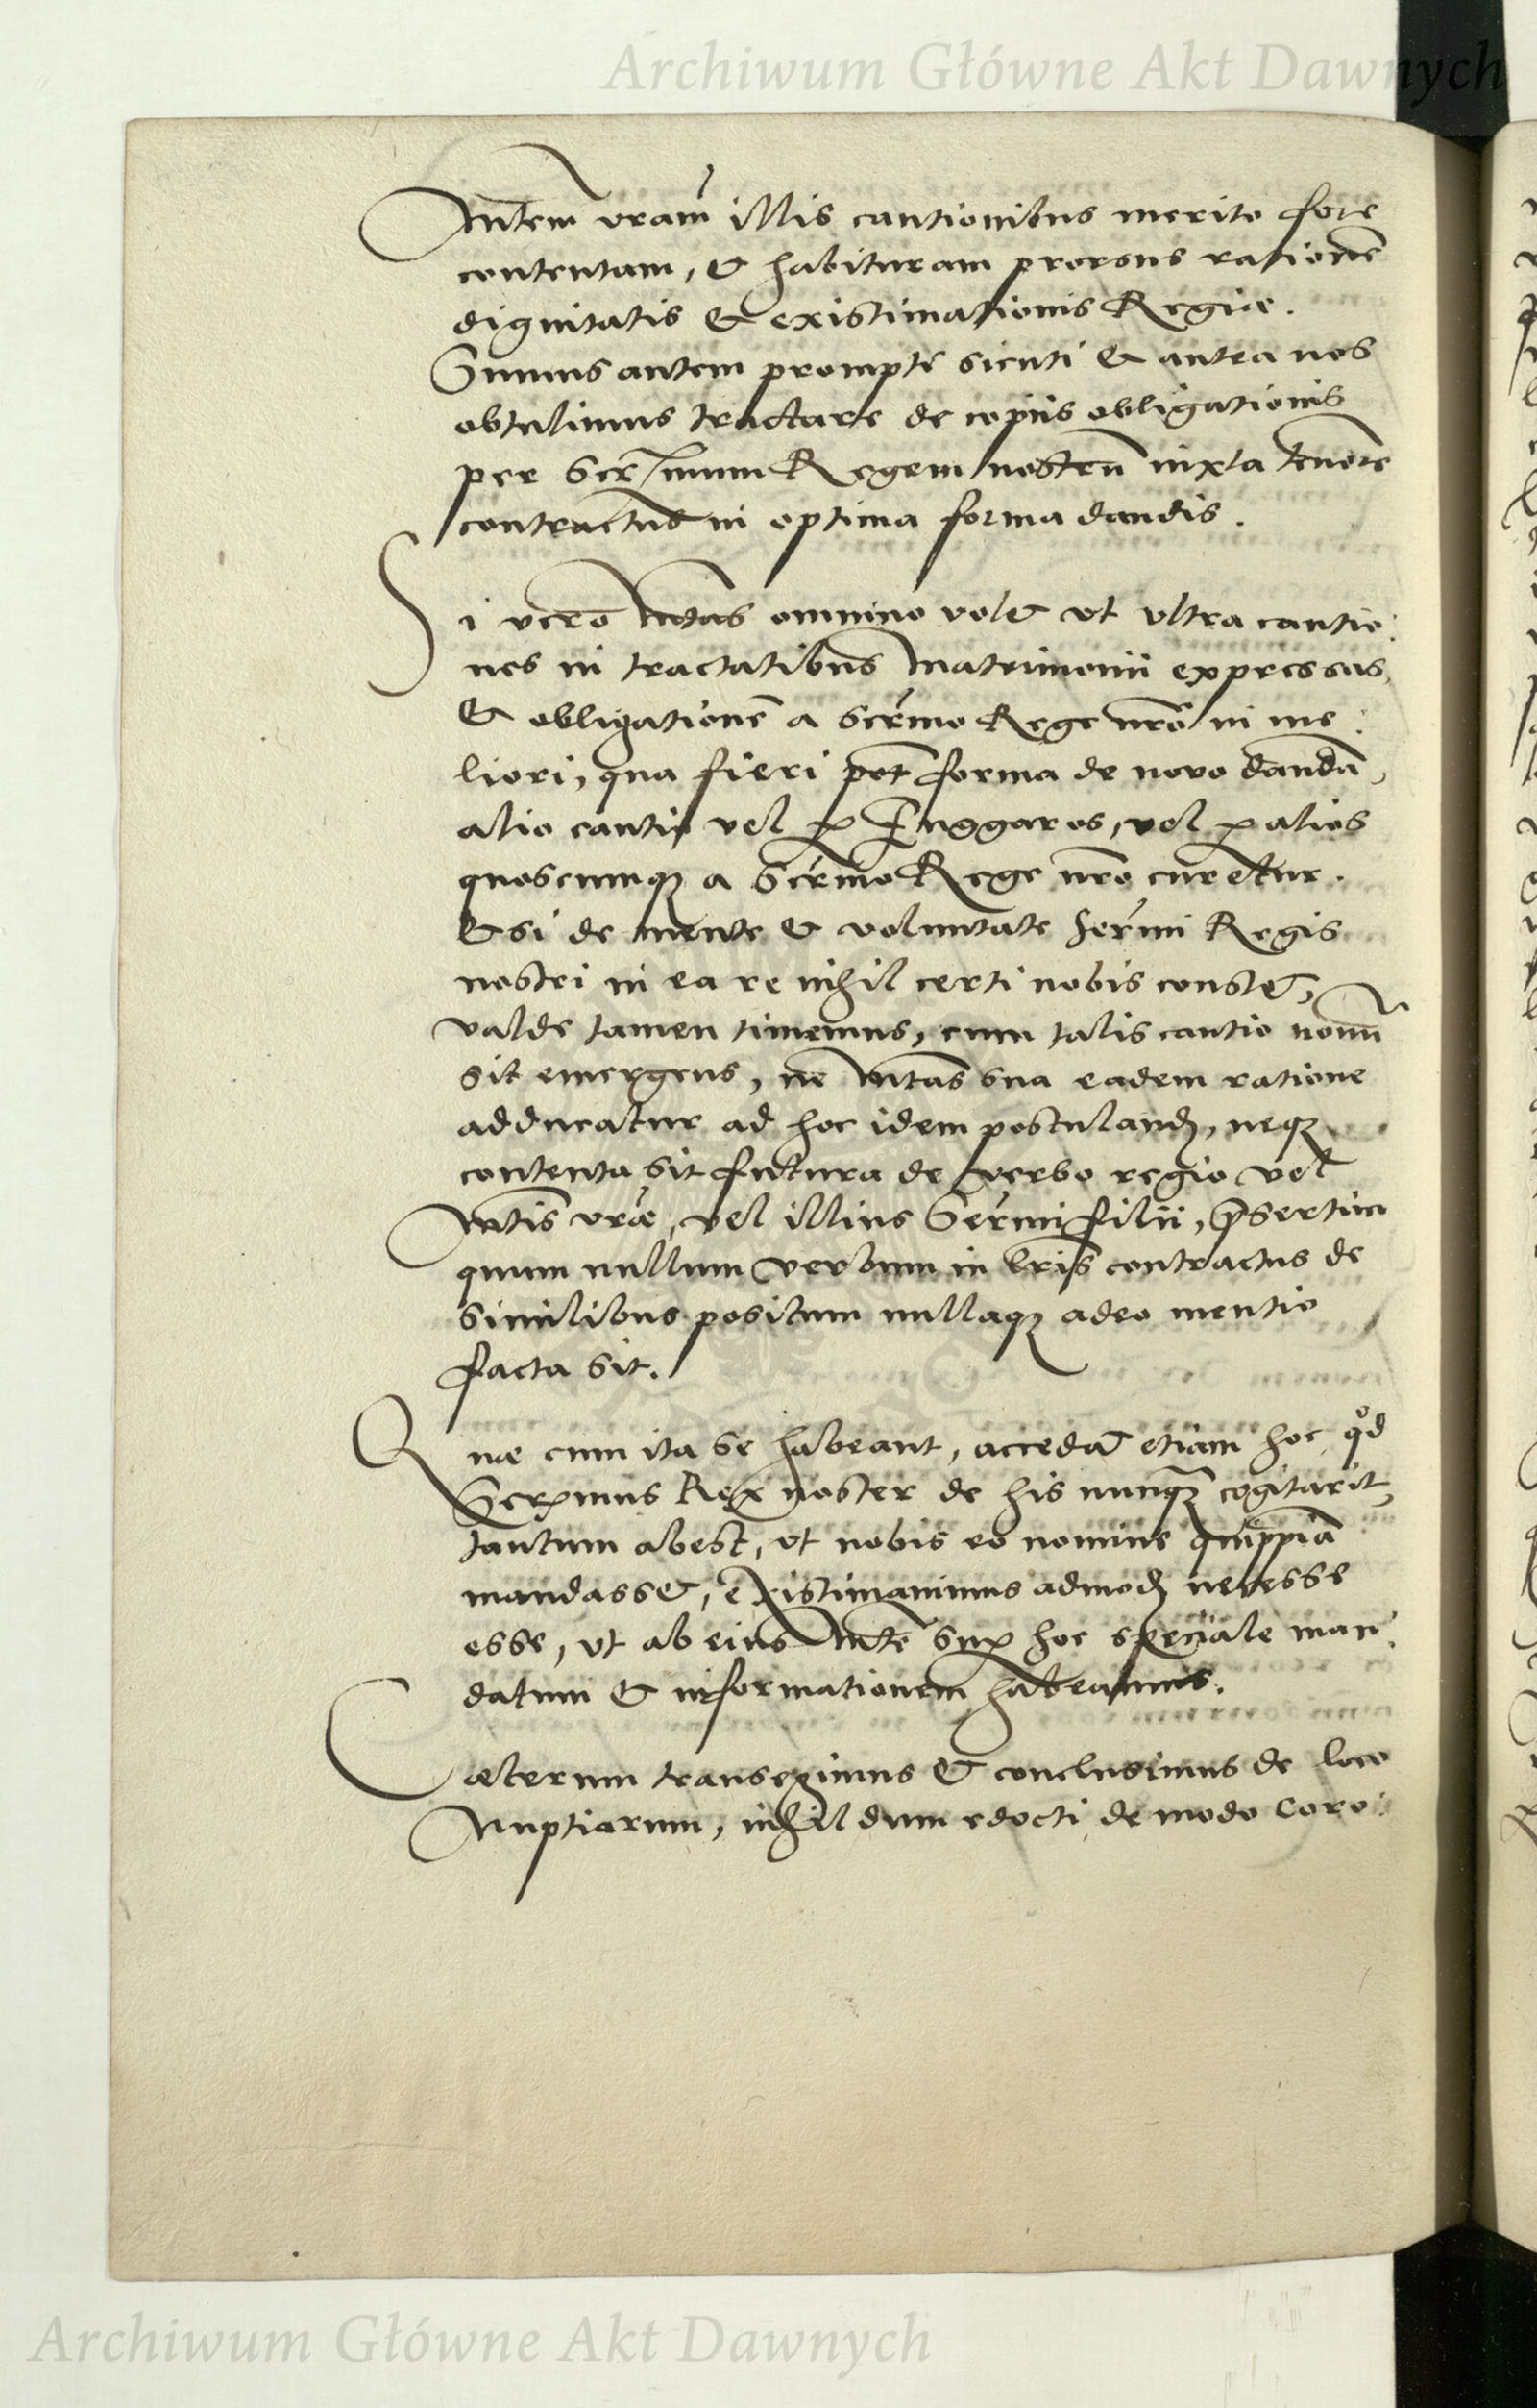 Archiwum Główne Akt Dawnych
Mtem vram illis cautionibus merito fore
contentam, & habituram prorsus rationē
dignitatis & existimationis Regiæ.
Sumus autem prompti sicuti & antea nos
obtulimus tractare de copiis obligationis
per Serᵐᵘᵐ Regem nostrū iuxta tenorē
contractus in optima forma dandis.
Si vero Mtas omnino volet ut ultra cautio:
nes in tractatibus matrimonii expressas,
& obligationē a Serᵐᵒ Rege nrō in me:
liori, qua fieri pot forma de novo dandā,
alio cautio vel p Fuggaros, vel p alios
quoscumqꝫ a Serᵐᵒ Rege nrō curetur.
Etsi de mente & voluntate Serᵐⁱ Regis
nostri in ea re nihil certi nobis constet,
valde tamen timemus, cum talis cautio novū
sit emergens, ne Mtas sua eadem ratione
adducatur ad hoc idem postulandꝫ, neqꝫ
contenta sit futura de verbo regio vel
Mtis vræ, vel illius Serᵐⁱ filii, p̄sertim
quum nullum verbum in lris contractus de
similibus positum nullaqꝫ adeo mentio
facta sit.
Quæ cum ita se habeant, accedat etiam hoc qd
Serᵐᵘˢ Rex noster de his nunqꝫ cogitarit,
tantum abest, ut nobis eo nomine quippiā
mandasset, existimavimus admodꝫ necesse
esse, ut ab eius Mte sup hoc speciale man:
datum & informationem habeamus.
Cæterum transegimus & conclusimus de loco
Nuptiarum, nihil dum edocti de modo Coro:
Archiwum Główne Akt Dawnych